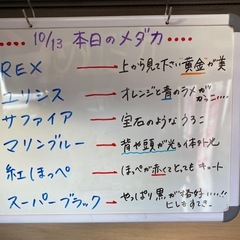 ....10/13 本日のメダカ....
REX → 上から見て下さい黄金が美
エリシス → オレンジと青のラメが
サファイア → 宝石のようなうろこ
マリンブルー → 背や頭が光る体外光
紅ほっぺ → ほっぺが赤くてとてもキュート
スーパーブラック → やっぱり黒が
ヒレもすてき